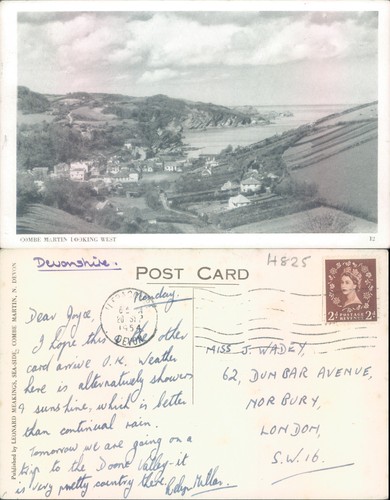 COMBE MARTIN LOOKING WEST
12
Devonshire.
POST CARD
H825
Monday.
1954
DEVON
2d POSTAGE REVENUE 2d
Dear Joyce,
I hope this & the other
card arrive O.K. Weather
here is alternatively showers
& sunshine, which is better
than continual rain.
Tomorrow we are going on a
trip to the Doone Valley-it
is very pretty country there.
MISS J. WADEY,
62, DUNBAR AVENUE,
NORBURY,
LONDON,
S.W.16.
Published by LEONARD MEAKINGS, SEA-SIDE, COMBE MARTIN, N. DEVON